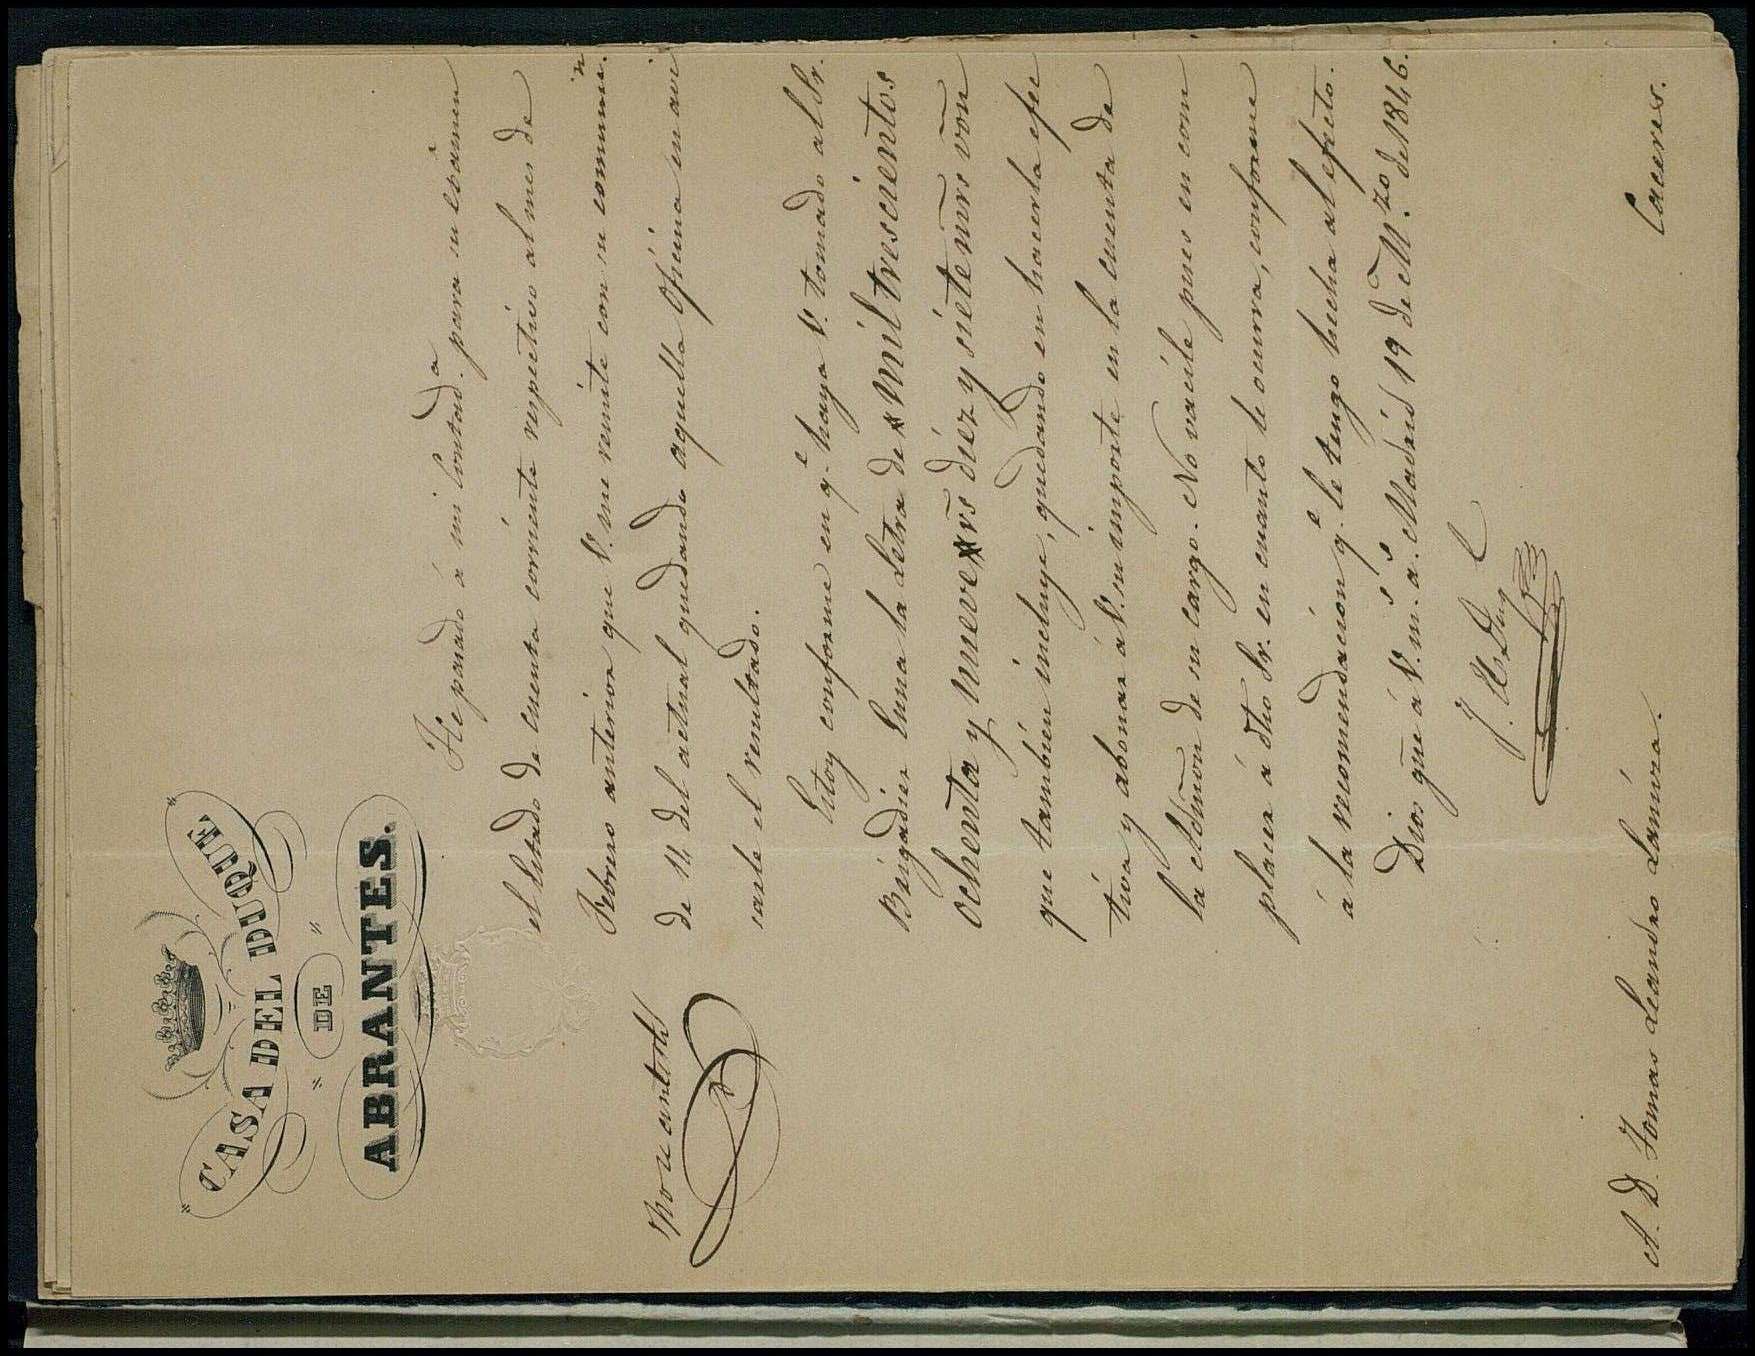 CASA DEL DUQUE
DE
ABRANTES.
He pasado á mi Contad.a para su exámen
el Estado de cuenta corriente respectivo al mes de
Febrero anterior que V. me remite con su comunic.n
de 14 del actual quedando aquella Oficina en avi
sarle el resultado.
Estoy conforme en q.e haya V. tomado al Sr.
Brigadier Luna la Letra de mil trescientos
ochenta y nueve rs diez y siete mrs von
que tambien incluye, quedando en hacerla efec
tiva y abonar á V. su importe en la cuenta de
la Admon de su cargo. No vacile pues en com
placer á dho Sr. en cuanto le ocurra, conforme
á la recomendacion q.e le tengo hecha al efecto.
Dios gue á V. m.s a.s Madrid 19 de M.zo de 1846.
El Duq
A D. Tomas Leandro Lamúra.
Caceres.